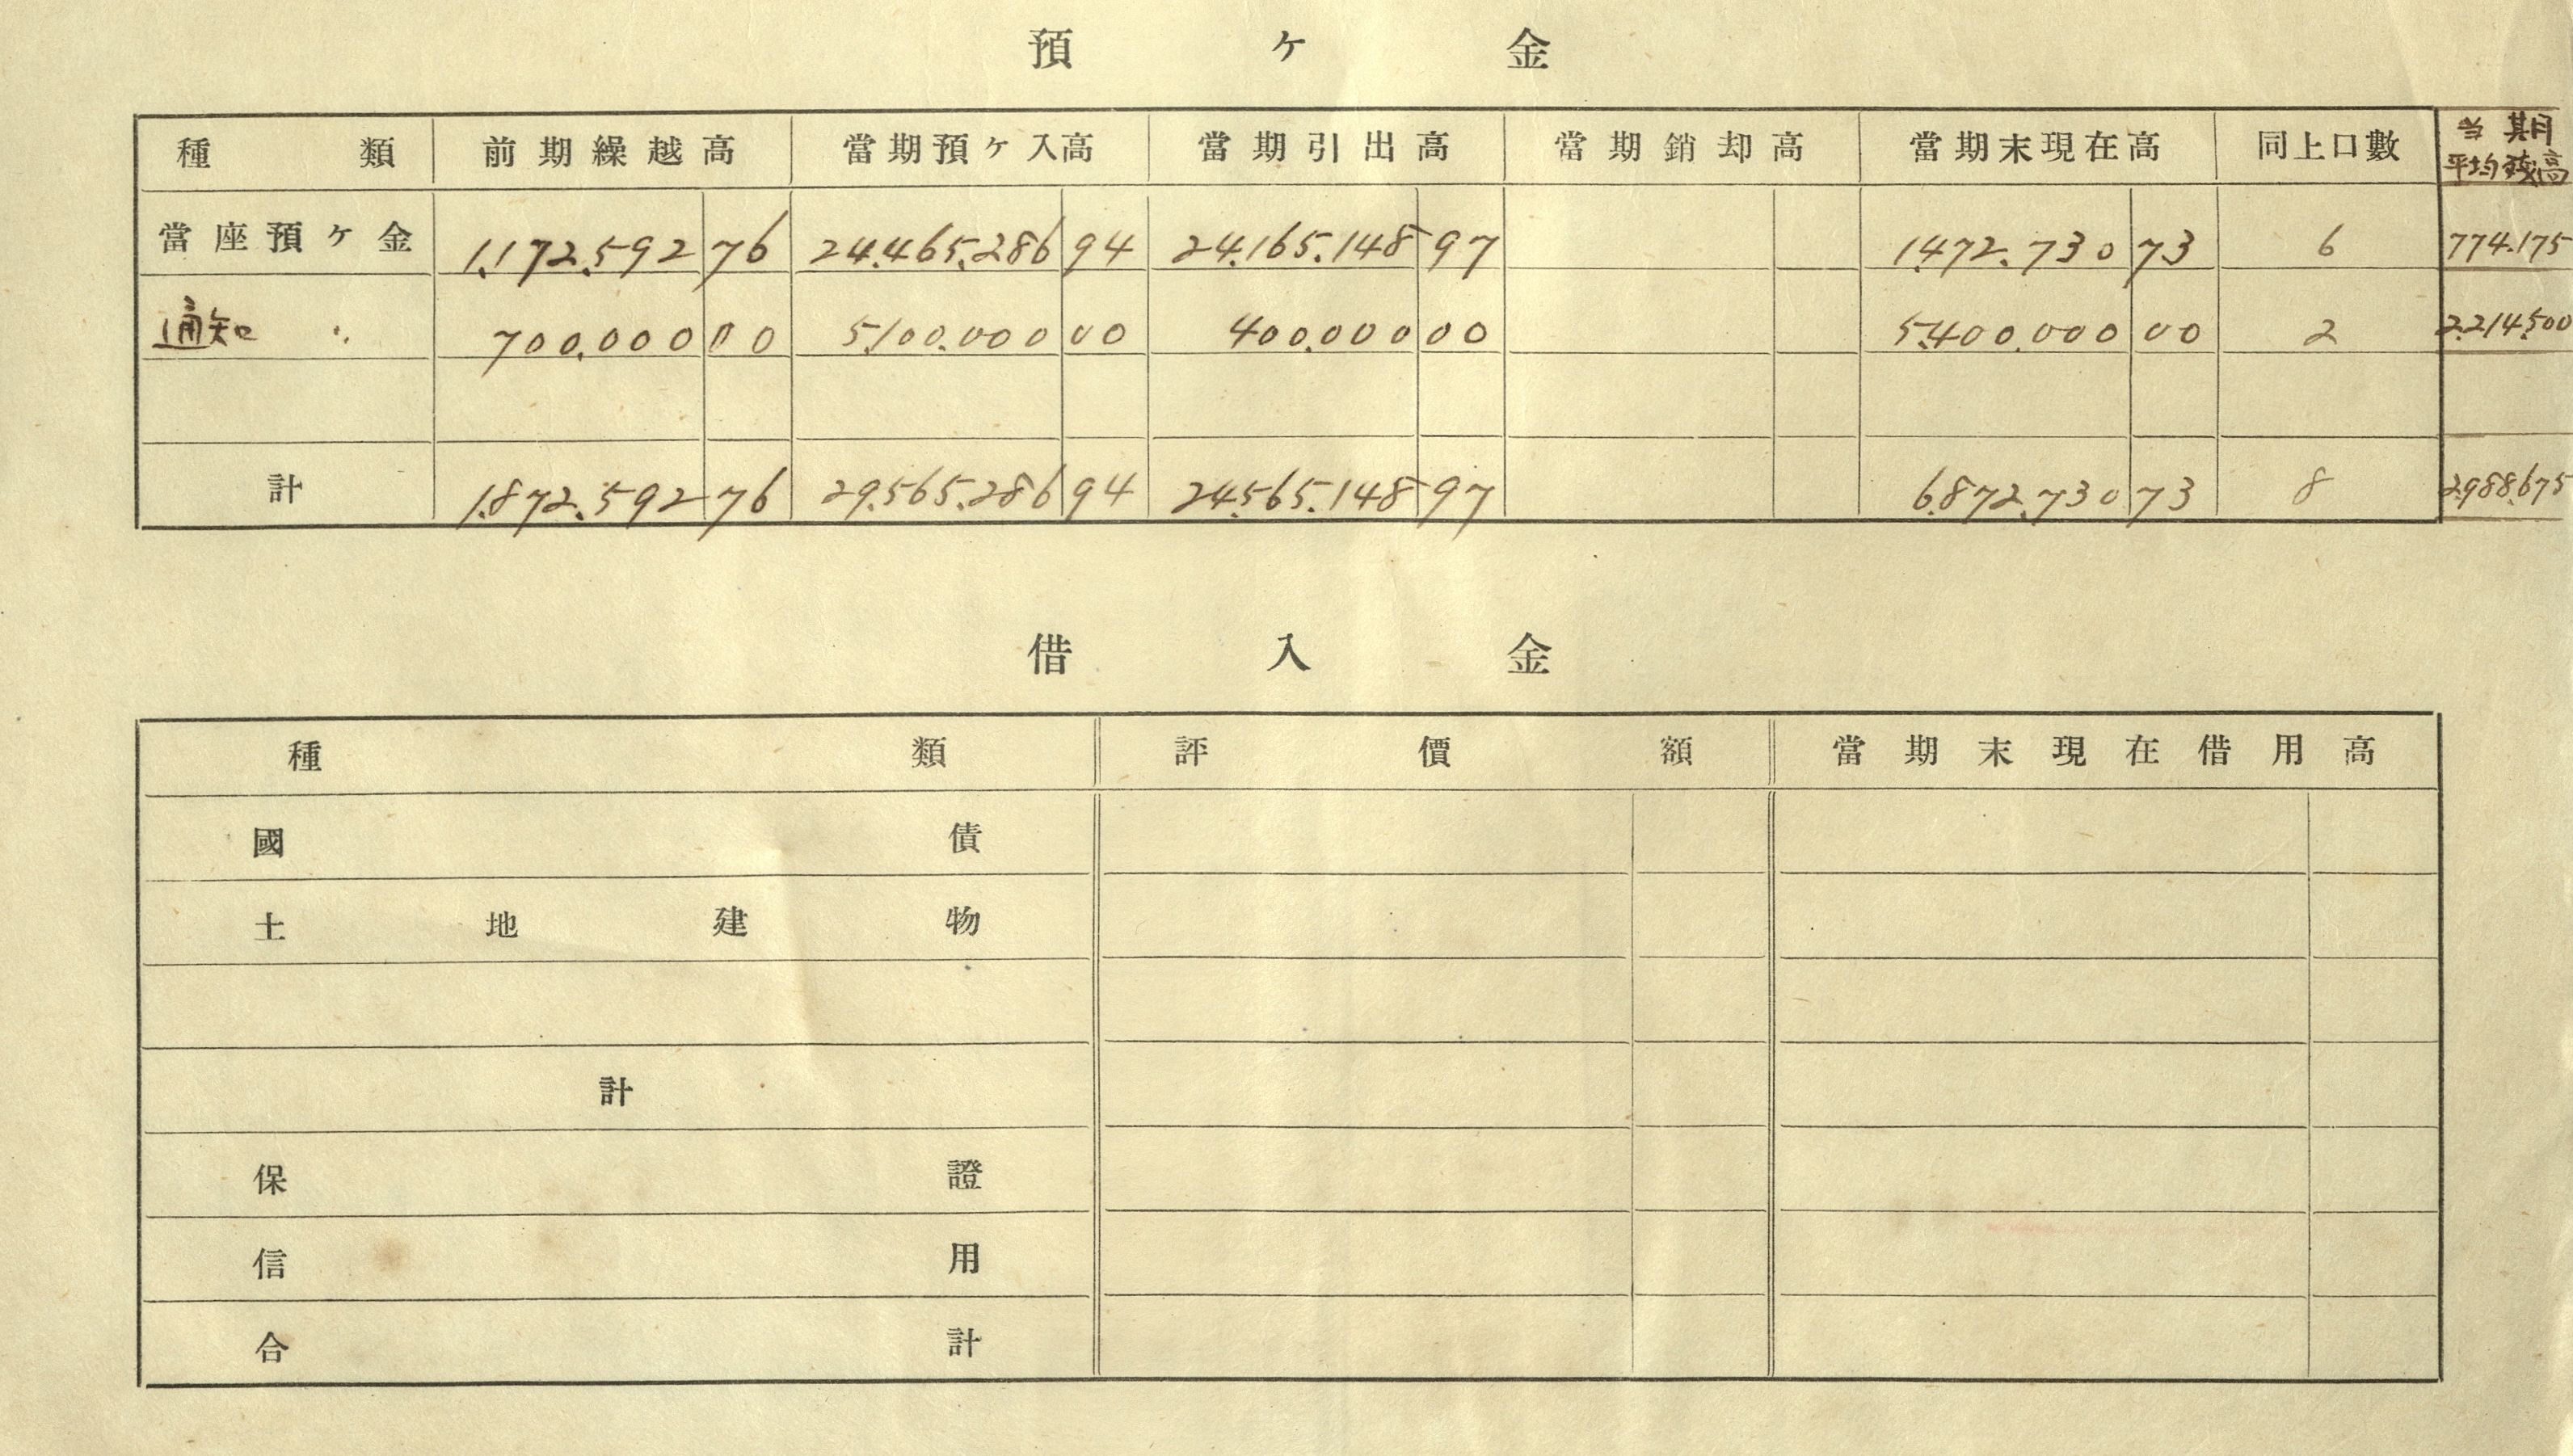 預ケ金
種類 前期繰越高 當期預ケ入高 當期引出高 當期銷却高 當期末現在高 同上口數 当期平均残高
當座預ケ金 1.172.592 76 24.465.286 94 24.165.148 97 1.472.730 73 6 774.175
通知 〃 700.000 00 5.100.000 00 400.000 00 5.400.000 00 2 2.214.500
計 1.872.592 76 29.565.286 94 24.565.148 97 6.872.730 73 8 2.988.675
借入金
種類 評價額 當期末現在借用高
國債
土地建物
計
保證
信用
合計